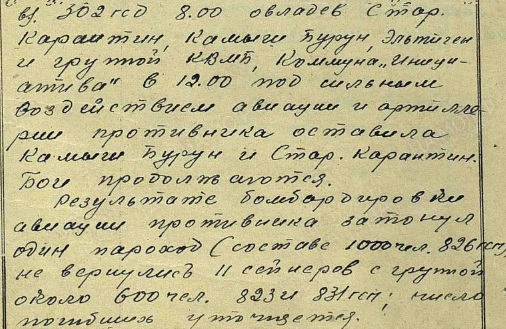 в) 302 гсд 8.00 овладев Стар.
Карантин, Камыш Бурун, Эльтиген
и группой КВМБ, Коммуна „Иници-
атива" в 12.00 под сильным
воздействием авиации и артилле-
рии противника оставила
Камыш Бурун и Стар. Карантин.
Бои продолжаются.
Результате бомбардировки
авиации противника затонул
один пароход (составе 1000 чел. 826 гсп)
не вернулись 11 сейнеров с группой
около 600 чел. 823 и 831 гсп; число
погибших уточняется.